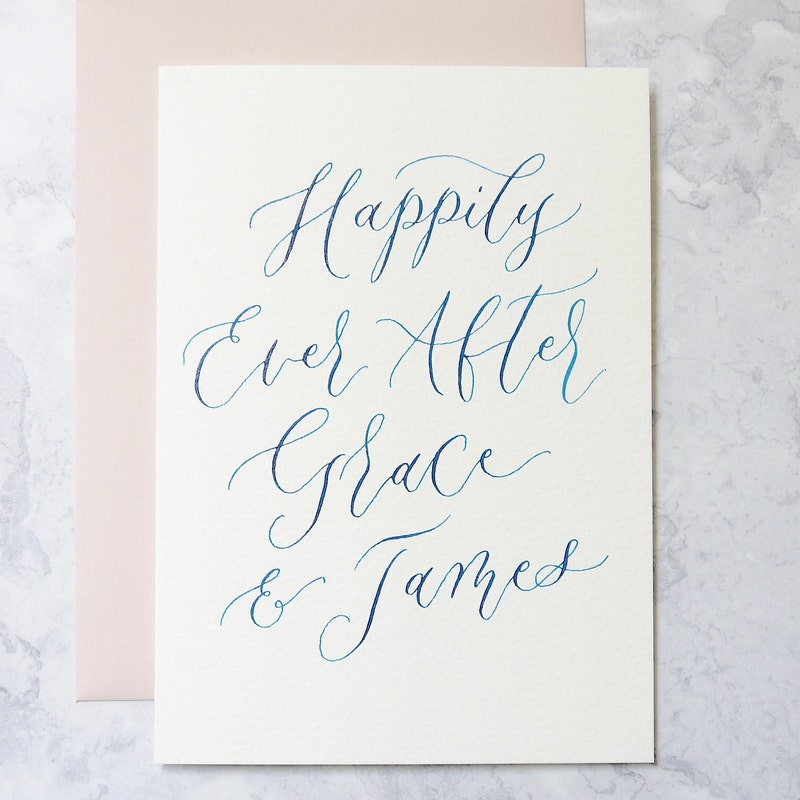 Happily
Ever After
Grace
& James